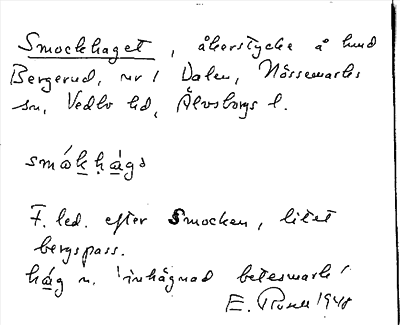 Smockhaget, åkerstycke å hmd
Bergerud, nr 1 Dalen, Nössemarks
sn, Vedbo hd, Älvsborgs l.
småkhága
F. led. efter Smocken, litet
bergspass.
hág n. 'inhägnad betesmark'
E. 1948